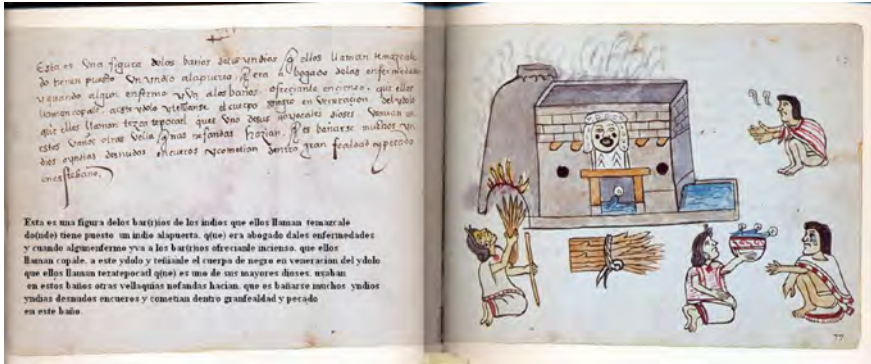 Esta es Una figura delos baños delos yndios q̃ ellos llaman temazcale
do tienen puesto Un yndio alapuerta q̃ era abogado delas enfermedades
y quando algun enfermo yVa alos baños ofreçianle ençienso, que ellos
llaman copale, aeste ydolo yteñianse el cuerpo negro en Veneraçion del ydolo
que ellos llaman tezcatepocatl ques Uno desus dioses. Usavan en
estos baños otras nefandas hazian. q̃ es bañarse muchos yn
dios oyndias desnudos encueros ycometian dentro gran fealdad ypecado
eneste baño.
Esta es una figura delos bar(r)ios de los indios que ellos llaman temazcale
do(nde) tiene puesto un indio alapuerta. q(ne) era abogado dales enfermedades
y cuando algunenfermo yva a los bar(r)nos ofrecianle incienso. que ellos
llaman copale. a este ydolo y teñianle el cuerpo de negro en veneracion del ydolo
que ellos llaman tezatepocatl q(ne) es uno de sus mayores dioses. usaban
en estos baños otras vellaquias nofandas hacian. que es bañarse muchos yndios
yndias desnudos encueros y cometian dentro granfealdad y pecado
en este baño.
77